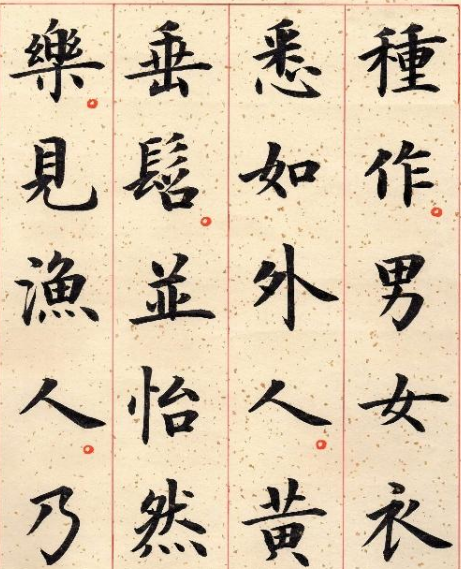 種作男女衣
悉如外人黄
垂髫並怡然
樂見漁人乃